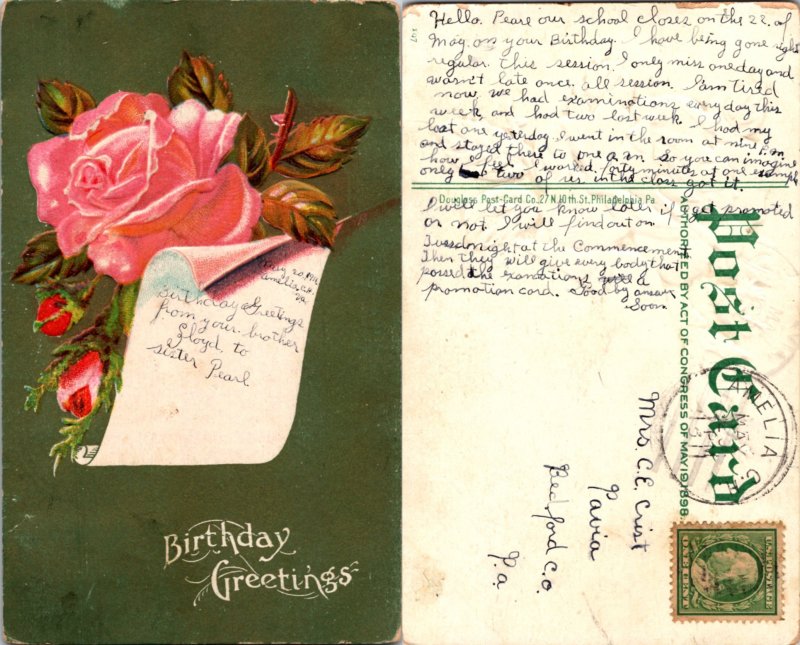 May 20, 1911
Amelia, C.H.
Va
Birthday Greetings
from your brother
Lloyd, to
sister Pearl
Birthday
Greetings
Hello. Peare our school closes on the 22. of
May. on your Birthday. I have being gone right
regular. this session. I only miss one day and
warn't late once. all session. I am tired
now. we had examinations every day this
week, and had two last week. I had my
last one yesterday. I went in the room at nine
and stayed there to one so you can imagine
how I feel. I worked forty minutes at one example
only two of us in the class got it.
Douglass Post-Card Co. 27 N. 10th St. Philadelphia Pa.
I will let you know later if I get promoted
or not I will find out on
Tuesdnight at the Commencement
Then they will give every body that
passed the examations a
promotion card. Good by answer
Soon
Post Card
AUTHORIZED BY ACT OF CONGRESS OF MAY 19, 1898.
AMELIA
MAY
Mrs. C.E. Crist
Pavia
Bedford Co.
P.a
U.S. POSTAGE
ONE CENT